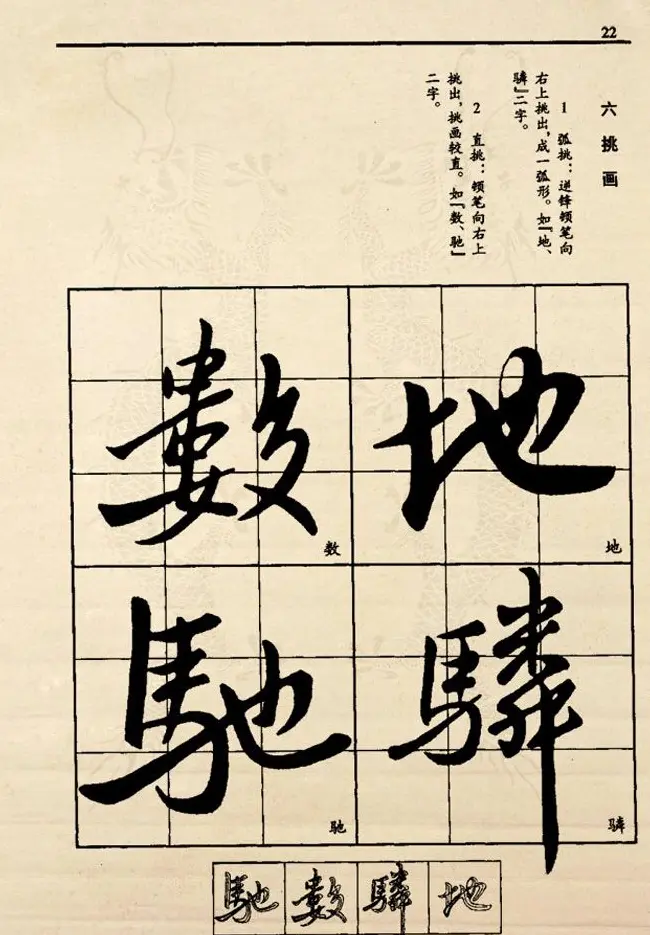 22
六 挑 画
1 弧挑：逆锋领笔向
右上挑出，成一弧形。如『地、
𬴊』二字。
2 直挑：领笔向右上
挑出，挑画较直。如『数、驰』
二字。
地
地
驎
𬴊
數
数
馳
驰
地
驎
數
馳